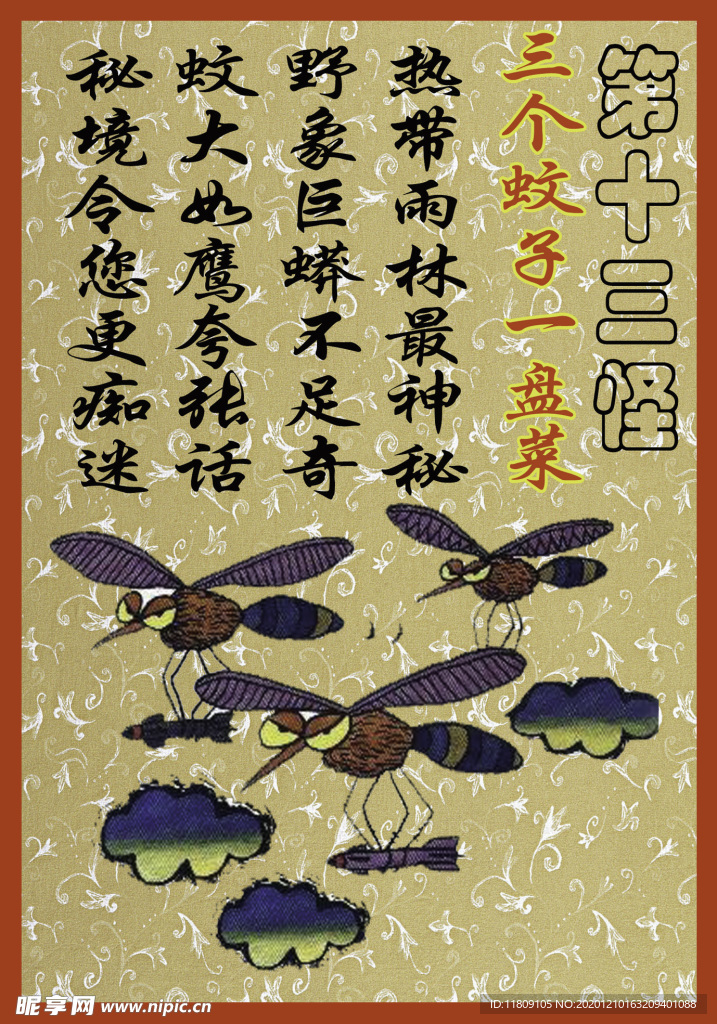 第十三怪
三个蚊子一盘菜
热带雨林最神秘
野象巨蟒不足奇
蚊大如鹰夸张话
秘境令您更痴迷
昵享网 www.nipic.cn
ID:11809105 NO:20201210163209401088